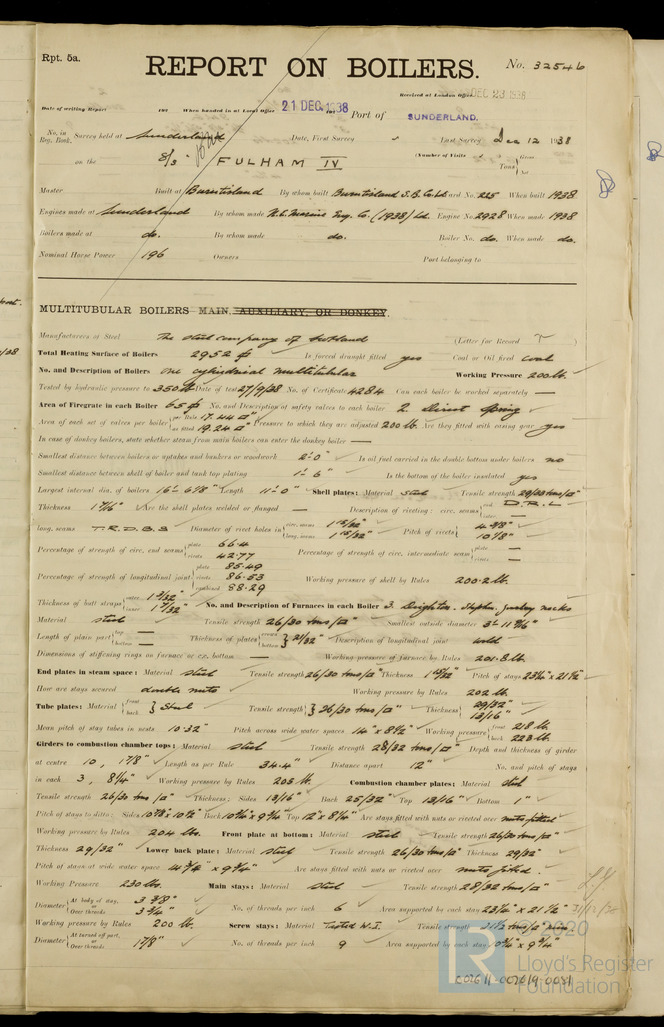 Rpt. 5a.
REPORT ON BOILERS.
No. 32546
Received at London Office DEC 23 1938
Date of writing Report 193 When handed in at Local Office 21 DEC 1938 193 Port of SUNDERLAND.
No. in Reg. Book. Survey held at Sunderland Date, First Survey Last Survey Dec 12 1938
on the S/S FULHAM IV (Number of Visits ) Tons Gross Net
Master Built at Burntisland By whom built Burntisland S.B. Co. Ltd Yard No. 225 When built 1938
Engines made at Sunderland By whom made N.E. Marine Eng. Co. (1938) Ltd. Engine No. 2928 When made 1938
Boilers made at do. By whom made do. Boiler No. do. When made do.
Nominal Horse Power 196 Owners Port belonging to
MULTITUBULAR BOILERS MAIN, AUXILIARY, OR DONKEY.
Manufacturers of Steel The Steel Company of Scotland (Letter for Record )
Total Heating Surface of Boilers 2952 Is forced draught fitted yes Coal or Oil fired coal
No. and Description of Boilers one cylindrical multitubular Working Pressure 200 lb.
Tested by hydraulic pressure to 350 lb Date of test 27/9/38 No. of Certificate 4284 Can each boiler be worked separately —
Area of Firegrate in each Boiler 65 No. and Description of safety valves to each boiler 2 Direct Spring
Area of each set of valves per boiler per Rule 17.44 as fitted 19.24 Pressure to which they are adjusted 200 lb. Are they fitted with easing gear yes
In case of donkey boilers, state whether steam from main boilers can enter the donkey boiler —
Smallest distance between boilers or uptakes and bunkers or woodwork 2'-0" Is oil fuel carried in the double bottom under boilers no
Smallest distance between shell of boiler and tank top plating 1'-6" Is the bottom of the boiler insulated yes
Largest internal dia. of boilers 16'-6 1/8" Length 11'-0" Shell plates: Material steel Tensile strength 29/33 tons/□"
Thickness Are the shell plates welded or flanged — Description of riveting: circ. seams end D.R.L inter. —
long. seams T.R.D.B.S Diameter of rivet holes in circ. seams long. seams Pitch of rivets 10 1/8"
Percentage of strength of circ. end seams plate 66.4 rivets 42.77 Percentage of strength of circ. intermediate seam plate — rivets —
Percentage of strength of longitudinal joint plate 85.49 rivets 86.53 combined 88.29 Working pressure of shell by Rules 200.2 lb.
Thickness of butt straps outer inner No. and Description of Furnaces in each Boiler 3 Deighton
Material steel Tensile strength 26/30 tons/□" Smallest outside diameter
Length of plain part top bottom — Thickness of plates crown bottom 21/32" Description of longitudinal joint weld
Dimensions of stiffening rings on furnace or c.c. bottom — Working pressure of furnace by Rules 201.8 lb.
End plates in steam space: Material steel Tensile strength 26/30 tons/□" Thickness Pitch of stays
How are stays secured double nuts Working pressure by Rules 202 lb.
Tube plates: Material front back Steel Tensile strength 26/30 tons/□" Thickness 29/32" 13/16"
Mean pitch of stay tubes in nests 10.32" Pitch across wide water spaces 14" x 8 1/2" Working pressure front 218 lb back 223 lb.
Girders to combustion chamber tops: Material steel Tensile strength 28/32 tons/□" Depth and thickness of girder
at centre 10, 1 7/8" Length as per Rule 34.4" Distance apart 12" No. and pitch of stays
in each 3, 8 1/4" Working pressure by Rules 205 lb Combustion chamber plates: Material steel
Tensile strength 26/30 tons/□" Thickness: Sides 13/16" Back 25/32" Top 13/16" Bottom 1"
Pitch of stays to ditto: Sides Back Top 12" x 8 1/4" Are stays fitted with nuts or riveted over nuts fitted
Working pressure by Rules 204 lbs. Front plate at bottom: Material steel Tensile strength 26/30 tons/□"
Thickness 29/32" Lower back plate: Material steel Tensile strength 26/30 tons/□" Thickness 29/32"
Pitch of stays at wide water space 14 3/4" x 9 3/4" Are stays fitted with nuts or riveted over nuts fitted.
Working Pressure 230 lbs. Main stays: Material steel Tensile strength 28/32 tons/□"
Diameter At body of stay, or Over threads 3 3/4" No. of threads per inch 6 Area supported by each stay 23 1/4" x 21 1/2"
Working pressure by Rules 200 lb. Screw stays: Material Tested W.I. Tensile strength 21 1/2 tons/□" min
Diameter At turned off part, or Over threads 1 7/8" No. of threads per inch 9 Area supported by each stay 10 3/4" x 9 3/4"
2020
Lloyd's Register
Foundation
002611-002619-0081